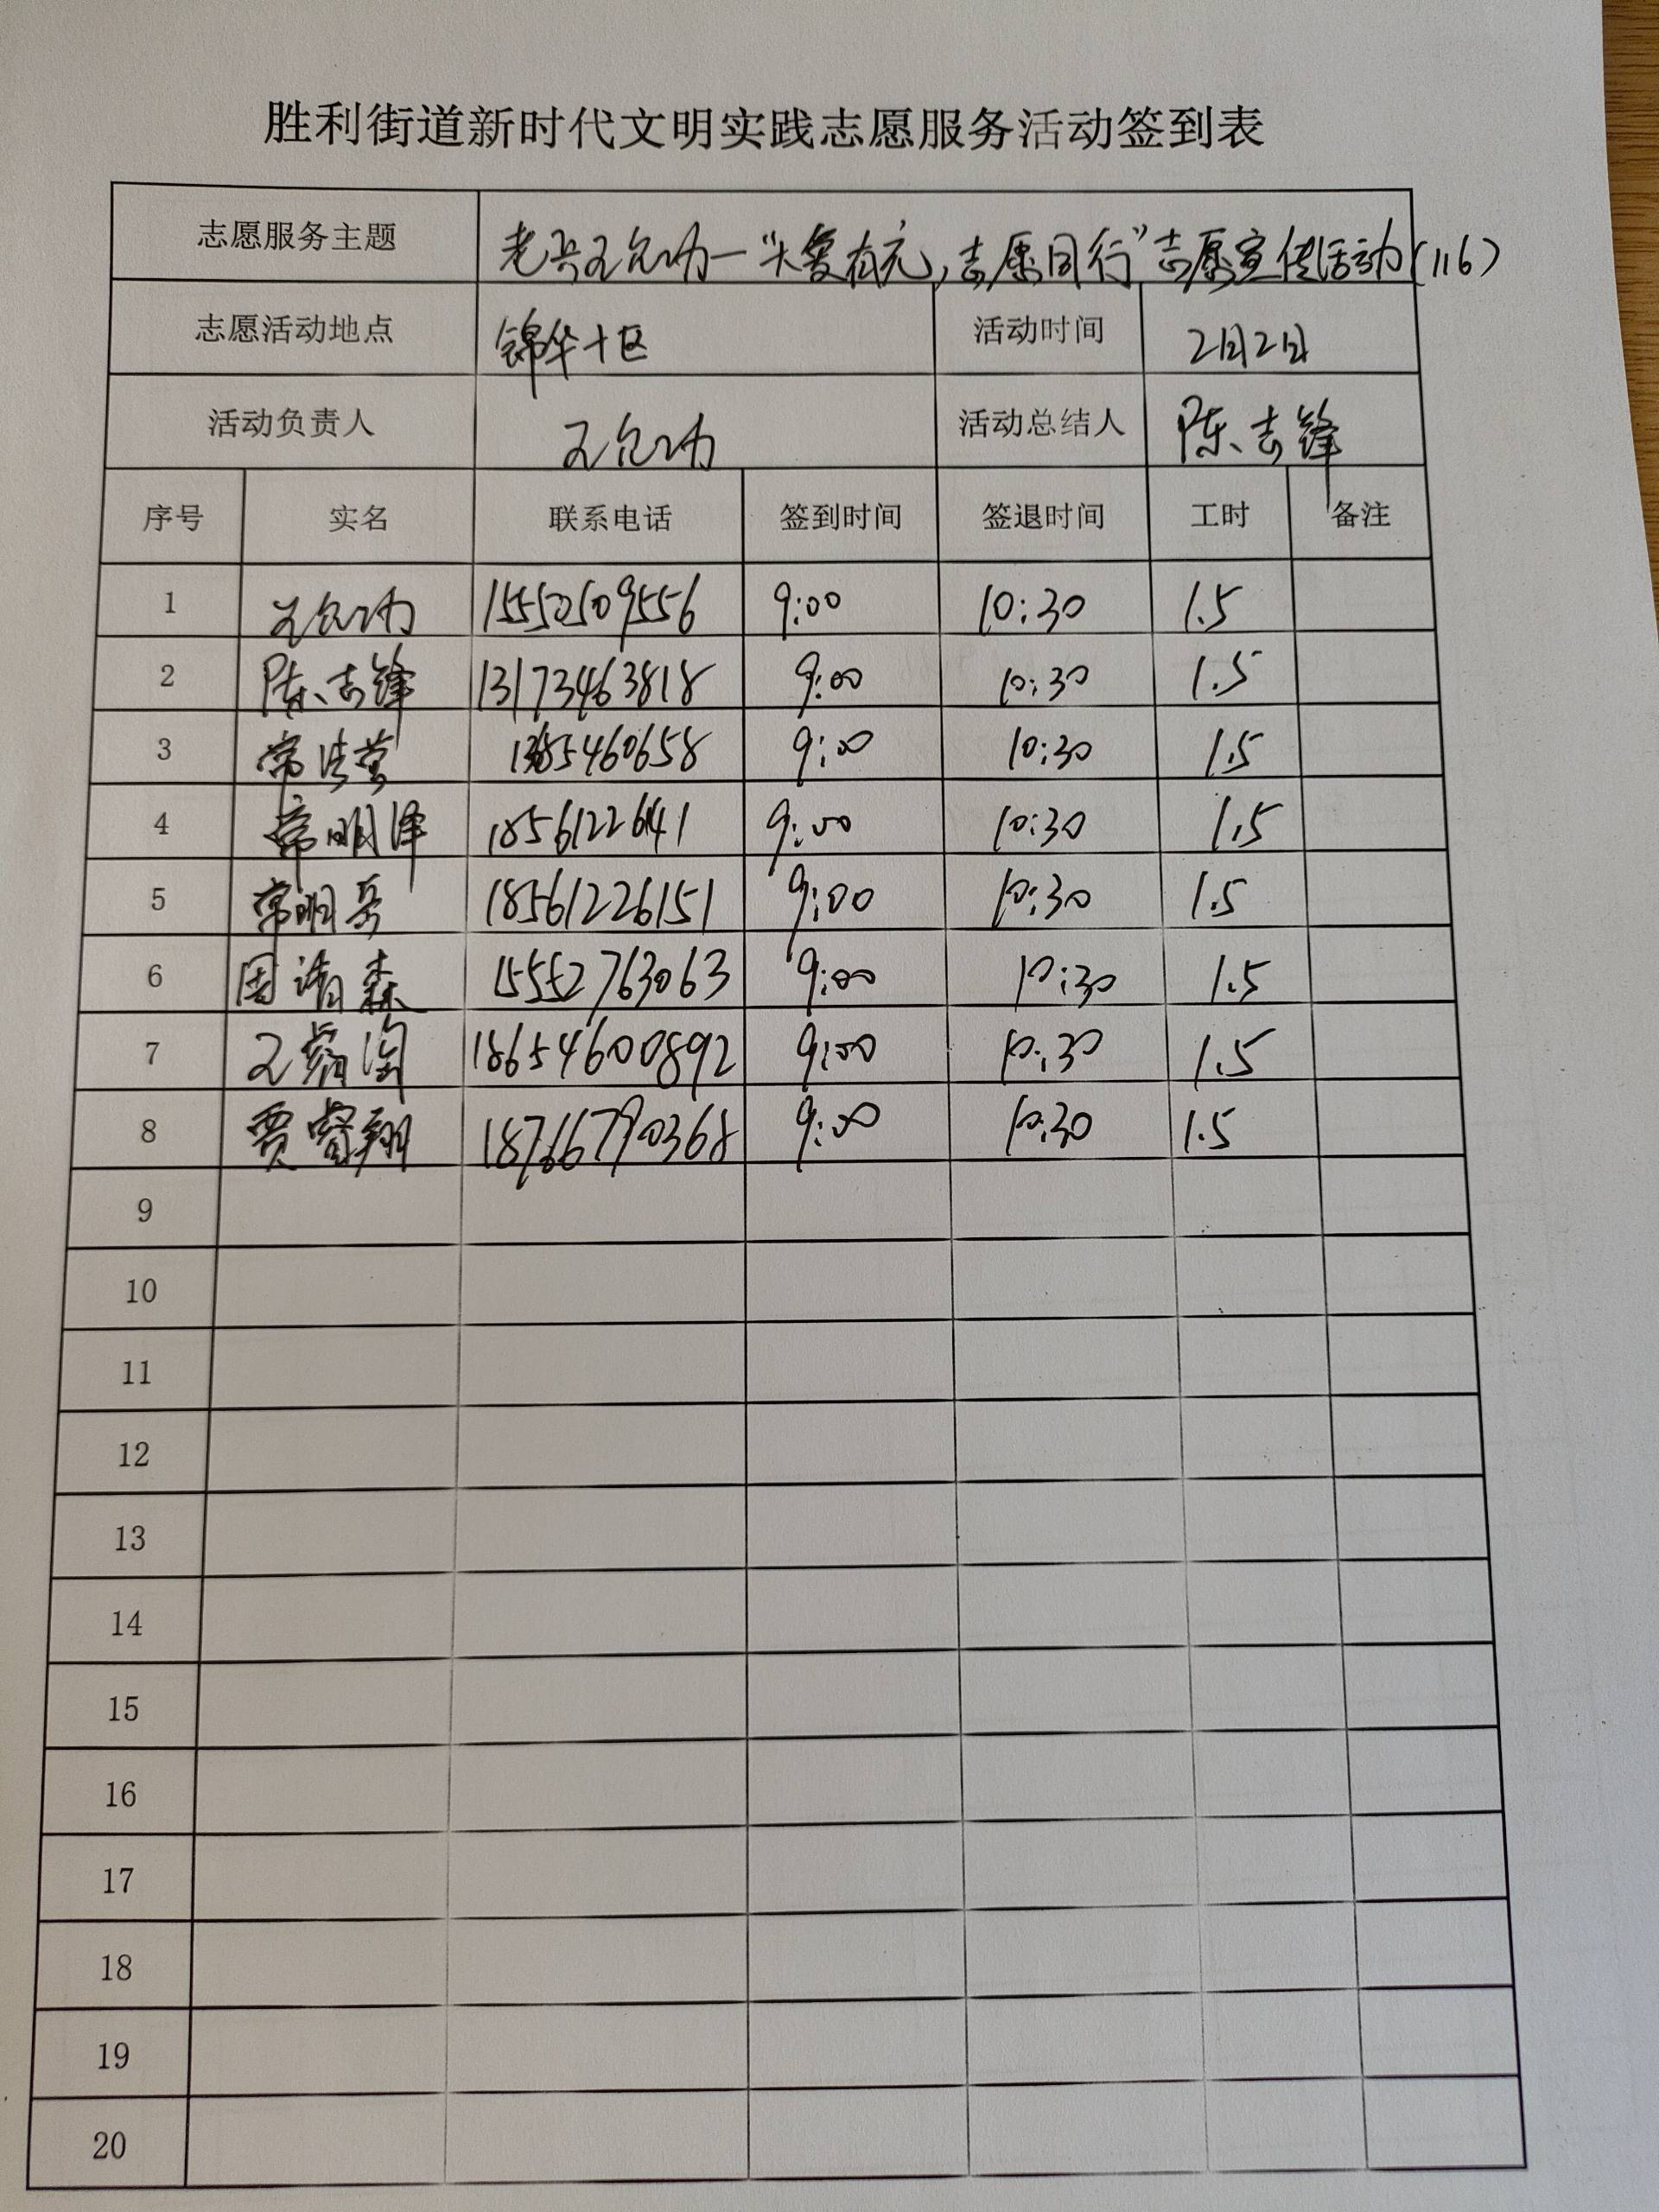 胜利街道新时代文明实践志愿服务活动签到表
志愿服务主题 老兵王允功—“大爱有元,志愿同行”志愿宣传活动(116)
志愿活动地点 锦华十区 活动时间 2月2日
活动负责人 王允功 活动总结人 陈志锋
序号 实名 联系电话 签到时间 签退时间 工时 备注
1 王允功 15552509556 9:00 10:30 1.5
2 陈志锋 13173463818 9:00 10:30 1.5
3 常 9:00 10:30 1.5
4 常明泽 9:00 10:30 1.5
5 常明 18561226151 9:00 10:30 1.5
6 周清森 15552763063 9:00 10:30 1.5
7 王 18654600892 9:00 10:30 1.5
8 贾睿翔 18766790368 9:00 10:30 1.5
9
10
11
12
13
14
15
16
17
18
19
20